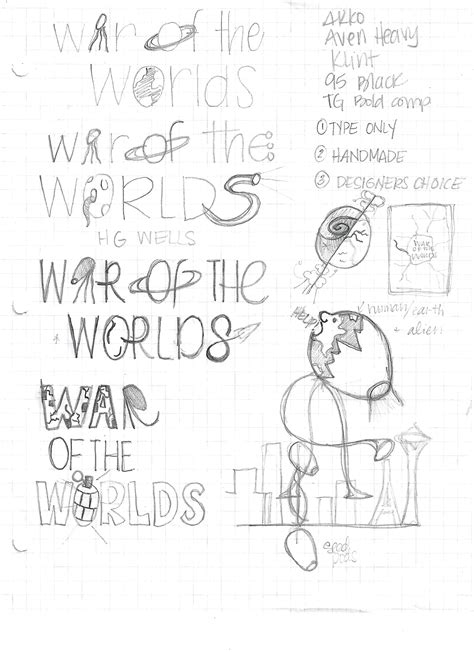 war of the
Worlds
war of the:
WORLDS
HG WELLS
WAR OF THE
WORLDS
WAR
OF THE
WORLDS
ARKO
Aven Heavy
Klint
95 Black
TG Bold comp
① TYPE ONLY
② HANDMADE
③ DESIGNERS CHOICE
WAR
OF THE
WORLDS
Help
human/earth
+ alien